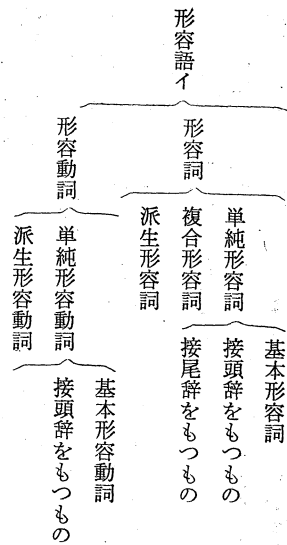 形容語イ
形容詞
単純形容詞
基本形容詞
接頭辞をもつもの
接尾辞をもつもの
複合形容詞
派生形容詞
形容動詞
単純形容動詞
基本形容動詞
接頭辞をもつもの
派生形容動詞